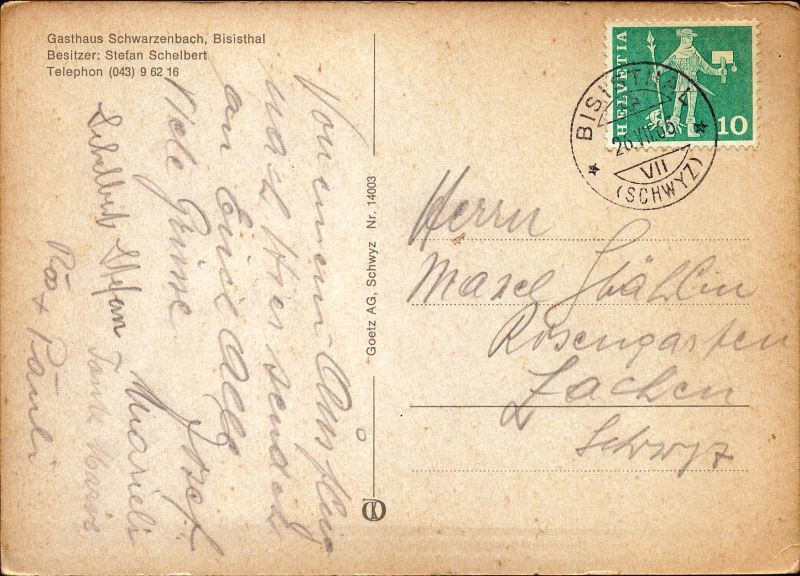 Gasthaus Schwarzenbach, Bisisthal
Besitzer: Stefan Schelbert
Telephon (043) 9 62 16
Von einem Ausflug
nach hier sendet
an Euch Alle
Viele Grüsse
Josef
Marieli
Schelbert Stefan
Tante Marie
Päuli
Goetz AG, Schwyz Nr. 14003
HELVETIA
10
BISISTHAL
26.VII.65
VII
(SCHWYZ)
Herrn
Marel Stählin
Rosengarten
Lachen
Schwyz